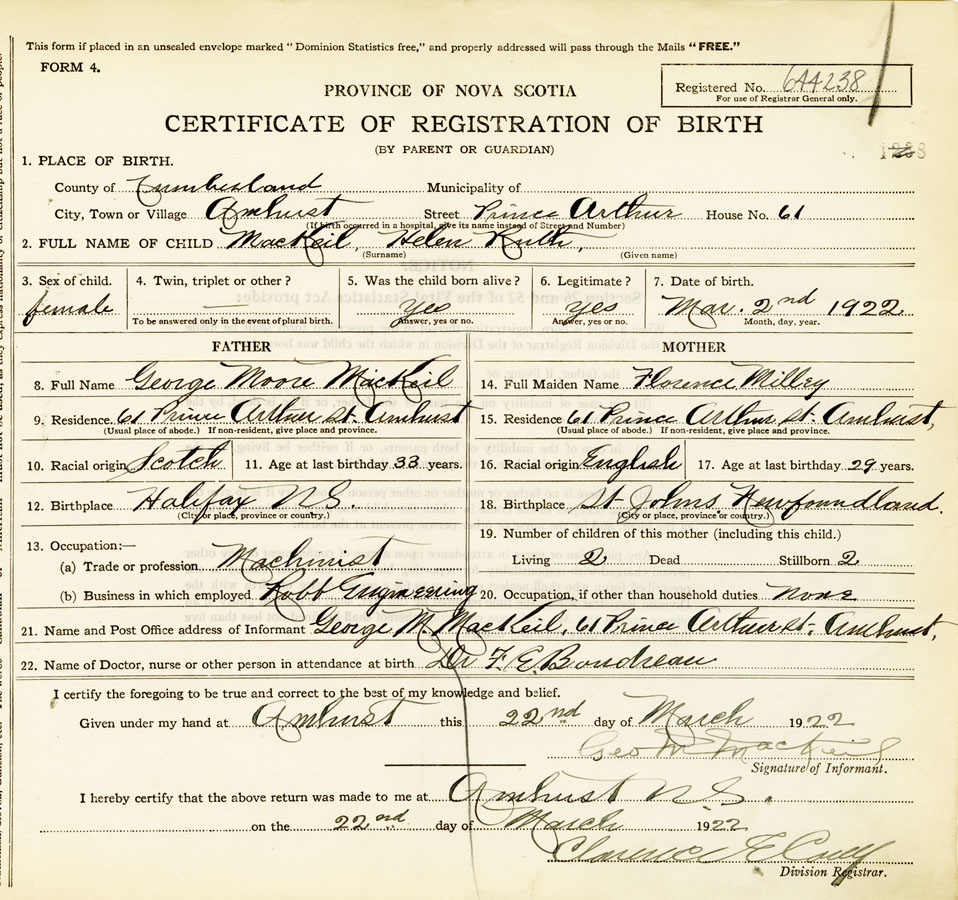 This form if placed in an unsealed envelope marked "Dominion Statistics free," and properly addressed will pass through the Mails "FREE."
FORM 4.
Registered No. 644238
For use of Registrar General only.
PROVINCE OF NOVA SCOTIA
CERTIFICATE OF REGISTRATION OF BIRTH
(BY PARENT OR GUARDIAN)
1. PLACE OF BIRTH.
County of Cumberland Municipality of
City, Town or Village Amhurst Street Prince Arthur House No. 61
(If birth occurred in a hospital, give its name instead of Street and Number)
2. FULL NAME OF CHILD MacKeil, Helen Ruth,
(Surname) (Given name)
3. Sex of child. 4. Twin, triplet or other? 5. Was the child born alive? 6. Legitimate? 7. Date of birth.
female Yes Yes Mar. 2nd 1922
To be answered only in the event of plural birth. Answer, yes or no. Answer, yes or no. Month, day, year.
FATHER MOTHER
8. Full Name George Moore MacKeil 14. Full Maiden Name Florence Milley
9. Residence 61 Prince Arthur St. Amhurst 15. Residence 61 Prince Arthur St. Amhurst,
(Usual place of abode.) If non-resident, give place and province. (Usual place of abode.) If non-resident, give place and province.
10. Racial origin Scotch 11. Age at last birthday 33 years. 16. Racial origin English 17. Age at last birthday 29 years.
12. Birthplace Halifax N.S. 18. Birthplace St Johns Newfoundland.
(City or place, province or country.) (City or place, province or country.)
13. Occupation:— 19. Number of children of this mother (including this child.)
(a) Trade or profession Machinist Living 2 Dead Stillborn 2
(b) Business in which employed Robb Engineering 20. Occupation, if other than household duties None
21. Name and Post Office address of Informant George M. MacKeil, 61 Prince Arthur St. Amhurst,
22. Name of Doctor, nurse or other person in attendance at birth Dr F. E. Boudreau
I certify the foregoing to be true and correct to the best of my knowledge and belief.
Given under my hand at Amhurst this 22nd day of March 1922
Geo M MacKeil
Signature of Informant.
I hereby certify that the above return was made to me at Amhurst N.S.
on the 22nd day of March 1922
Clarence E
Division Registrar.